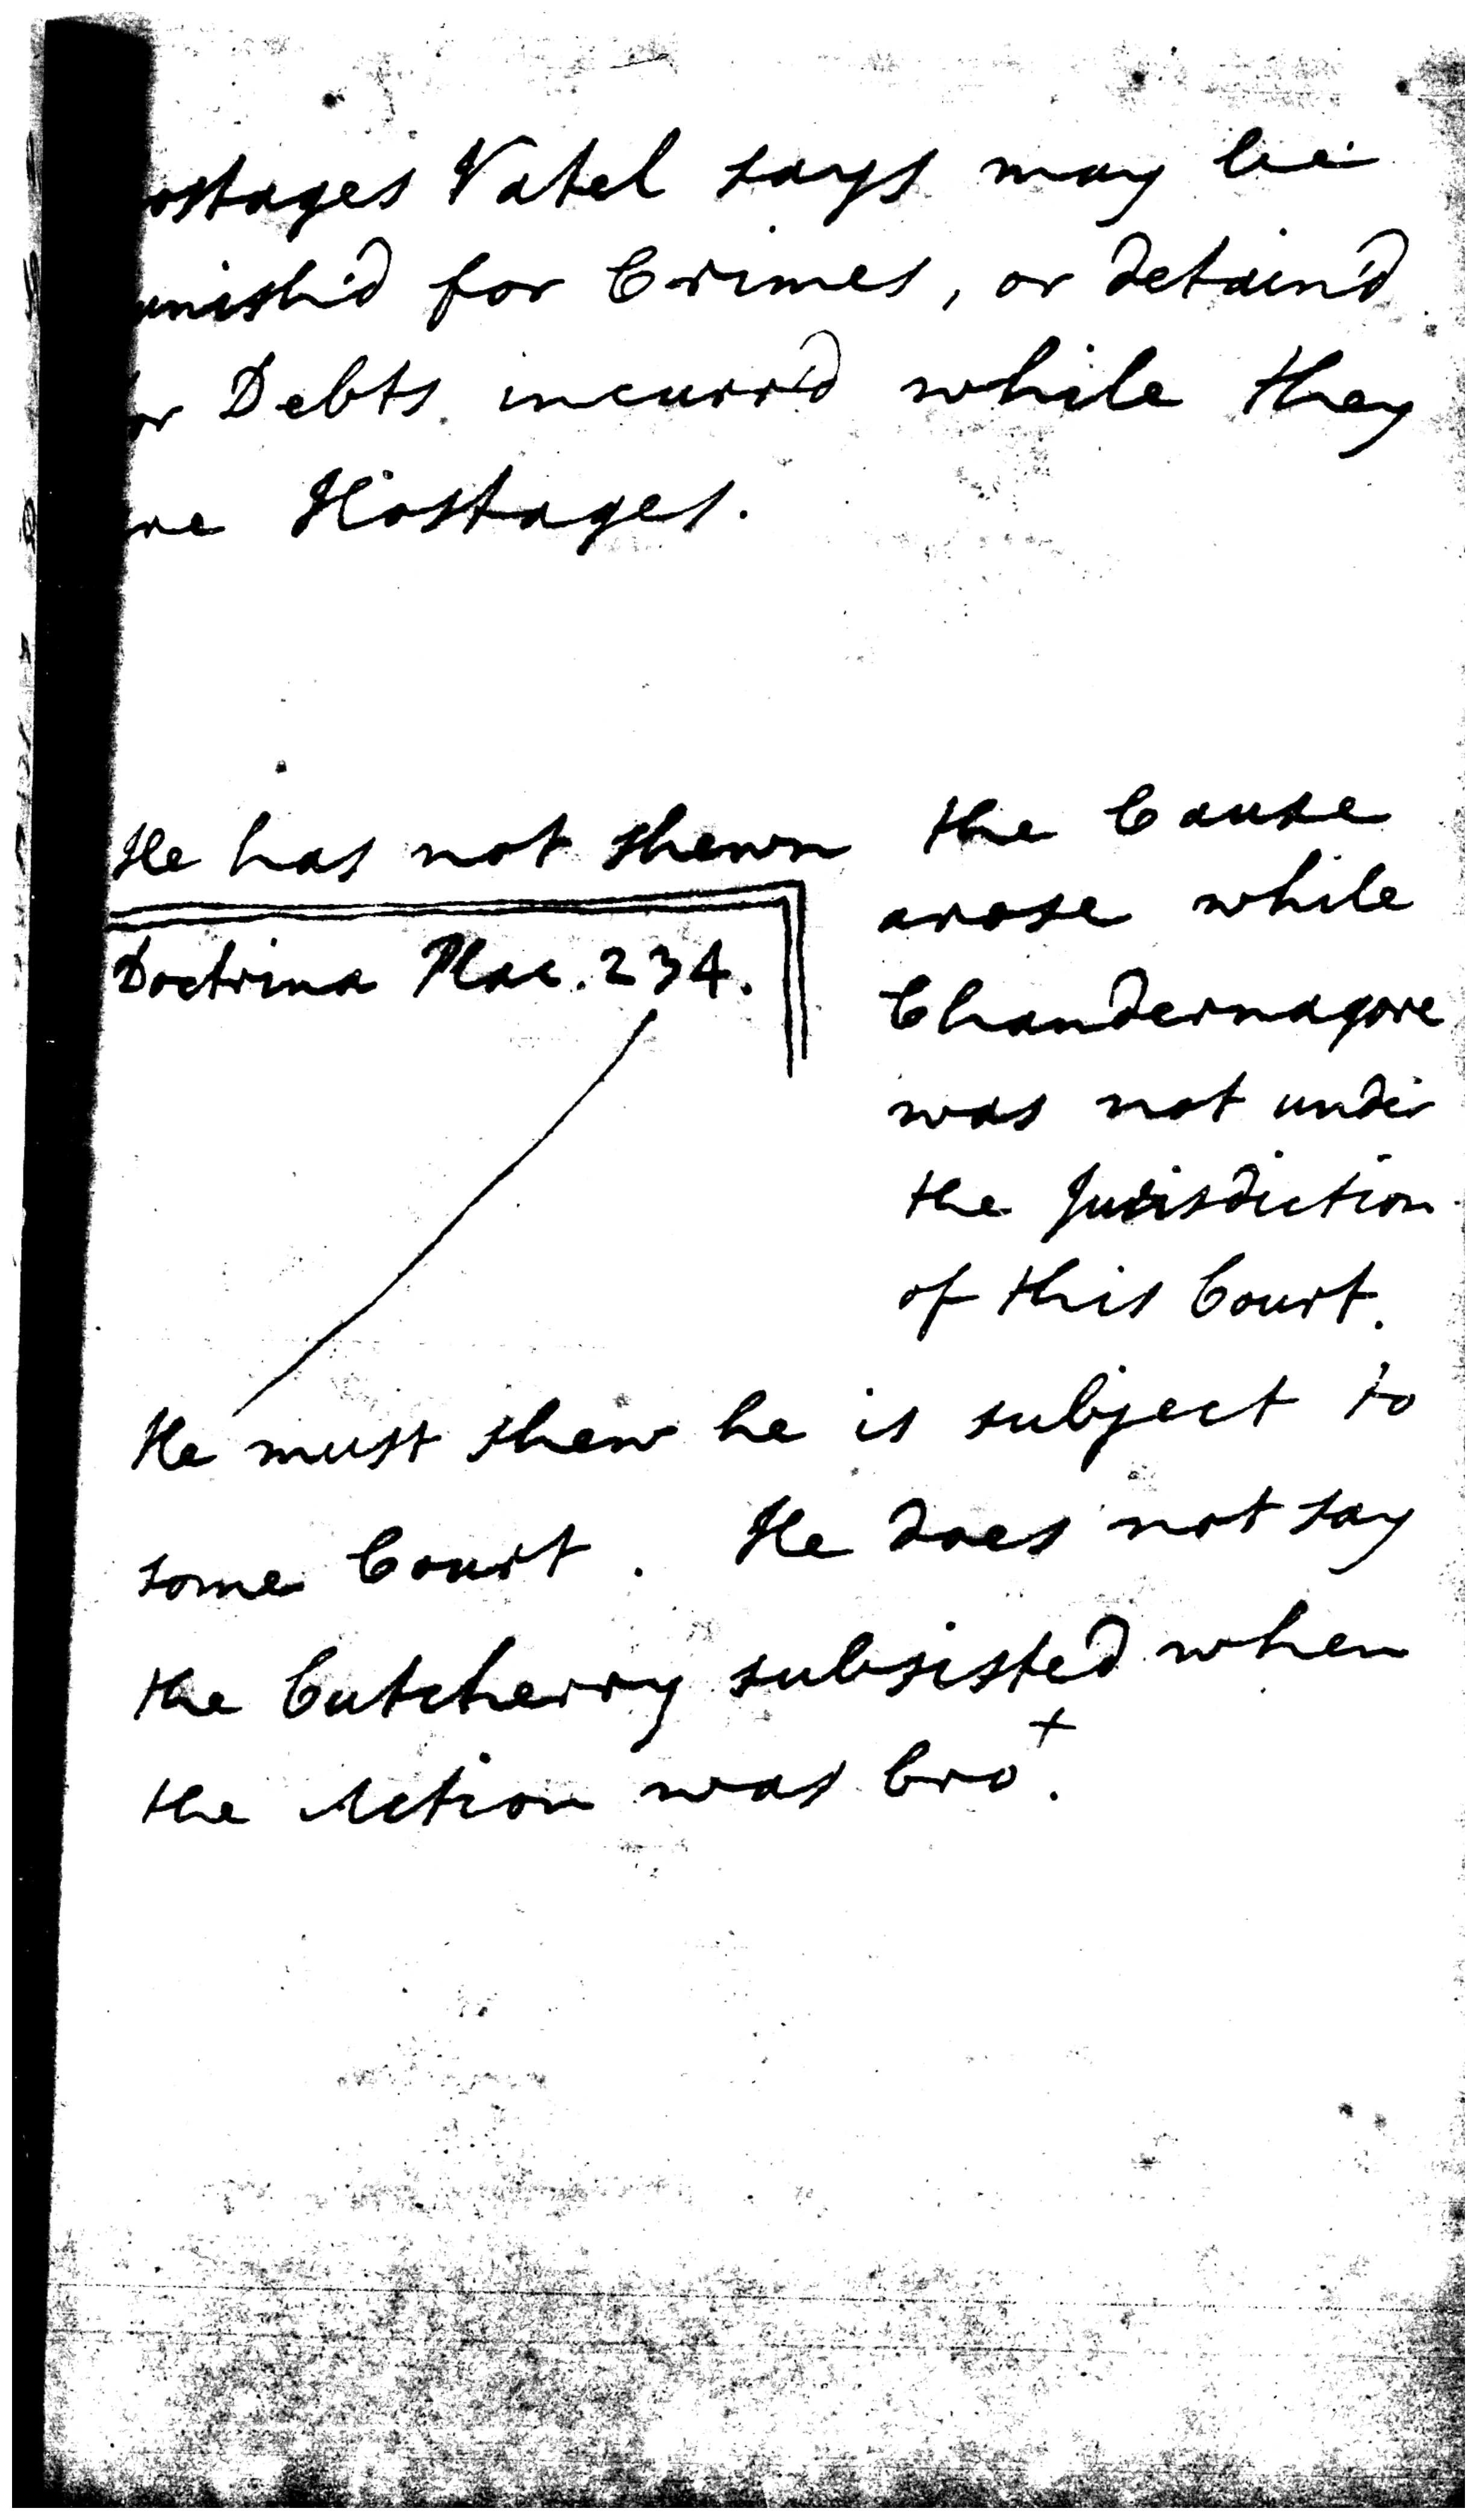 ostages Vatel says may be
unish'd for Crimes, or detain'd
or Debts incurr'd while they
are Hostages.
He has not shewn the Cause
arose while
Doctrina Plac. 234.
Chandernagore
was not under
the Jurisdiction
of this Court.
He must shew he is subject to
some Court. He does not say
the Cutcherry subsisted when
the Action was bro^t.